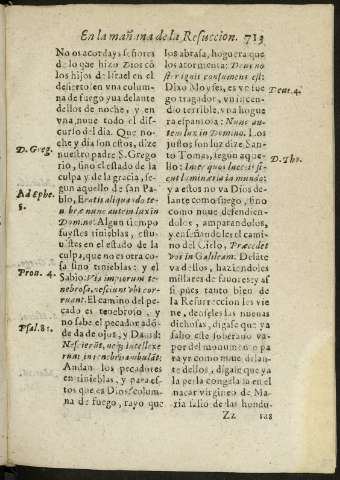 En la mañana de la Resurreccion. 713
No os acordays señores
de lo que hizo Dios cõ
los hijos de Israel en el
desierto en vna colum-
na de fuego yua delante
dellos de noche, y en
vna nuue todo el dis-
curso del dia. Que no-
che y dia son estos, dize
nuestro padre S. Grego
rio, sino el estado de la
culpa y de la gracia, se-
gun aquello de san Pa-
blo, Eratis aliquando te-
bræ nunc autem lux in
Domino: Algun tiempo
fuystes tinieblas, estu-
uistes en el estado de la
culpa, que no es otra co-
sa sino tinieblas: y el
Sabio: Via impiorum te-
nebrosa, nesciunt vbi cor-
ruant. El camino del pe-
cado es tenebroso, y
no sabe el pecador adõ-
de da de ojos, y Dauid:
Nescierũt, neq; intellexe
runt in tenebris ambulãt:
Andan los pecadores
en tinieblas, y para es-
tos es Dios colum-
na de fuego, rayo que
D. Greg.
Ad Ephe.
5.
Prou. 4.
Psal. 81.
los abrasa, hoguera que
los atormenta: Deus no-
ster ignis consumens est:
Dixo Moyses, es vn fue
go tragador, vn incen-
dio terrible, vna hogue
ra espantosa: Nunc au-
tem lux in Domino. Los
justos son luz dize San-
to Tomas, segun aque-
llo: Inter quos lucetis si-
cut luminaria in mundo:
y a estos no va Dios de-
lante como fuego, sino
como nuue defendien-
dolos, amparandolos,
y enseñandoles el cami-
no del Cielo, Præcedet
vos in Galileam. Delãte
va dellos, haziendoles
millares de fauores: y as
si pues tanto bien de
la Resurreccion les vie
ne, denseles las nueuas
dichosas, digase que ya
salio este soberano va-
por del monumento pa
ra yr como nuue delan-
te dellos, digase que ya
la perla congelada en el
nacar virgineo de Ma-
ria salio de las hondu-
Deut. 4.
D. Tho.
Zz ras